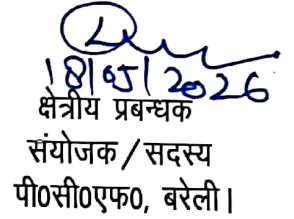 18/05/2026
क्षेत्रीय प्रबन्धक
संयोजक / सदस्य
पी0सी0एफ0, बरेली।